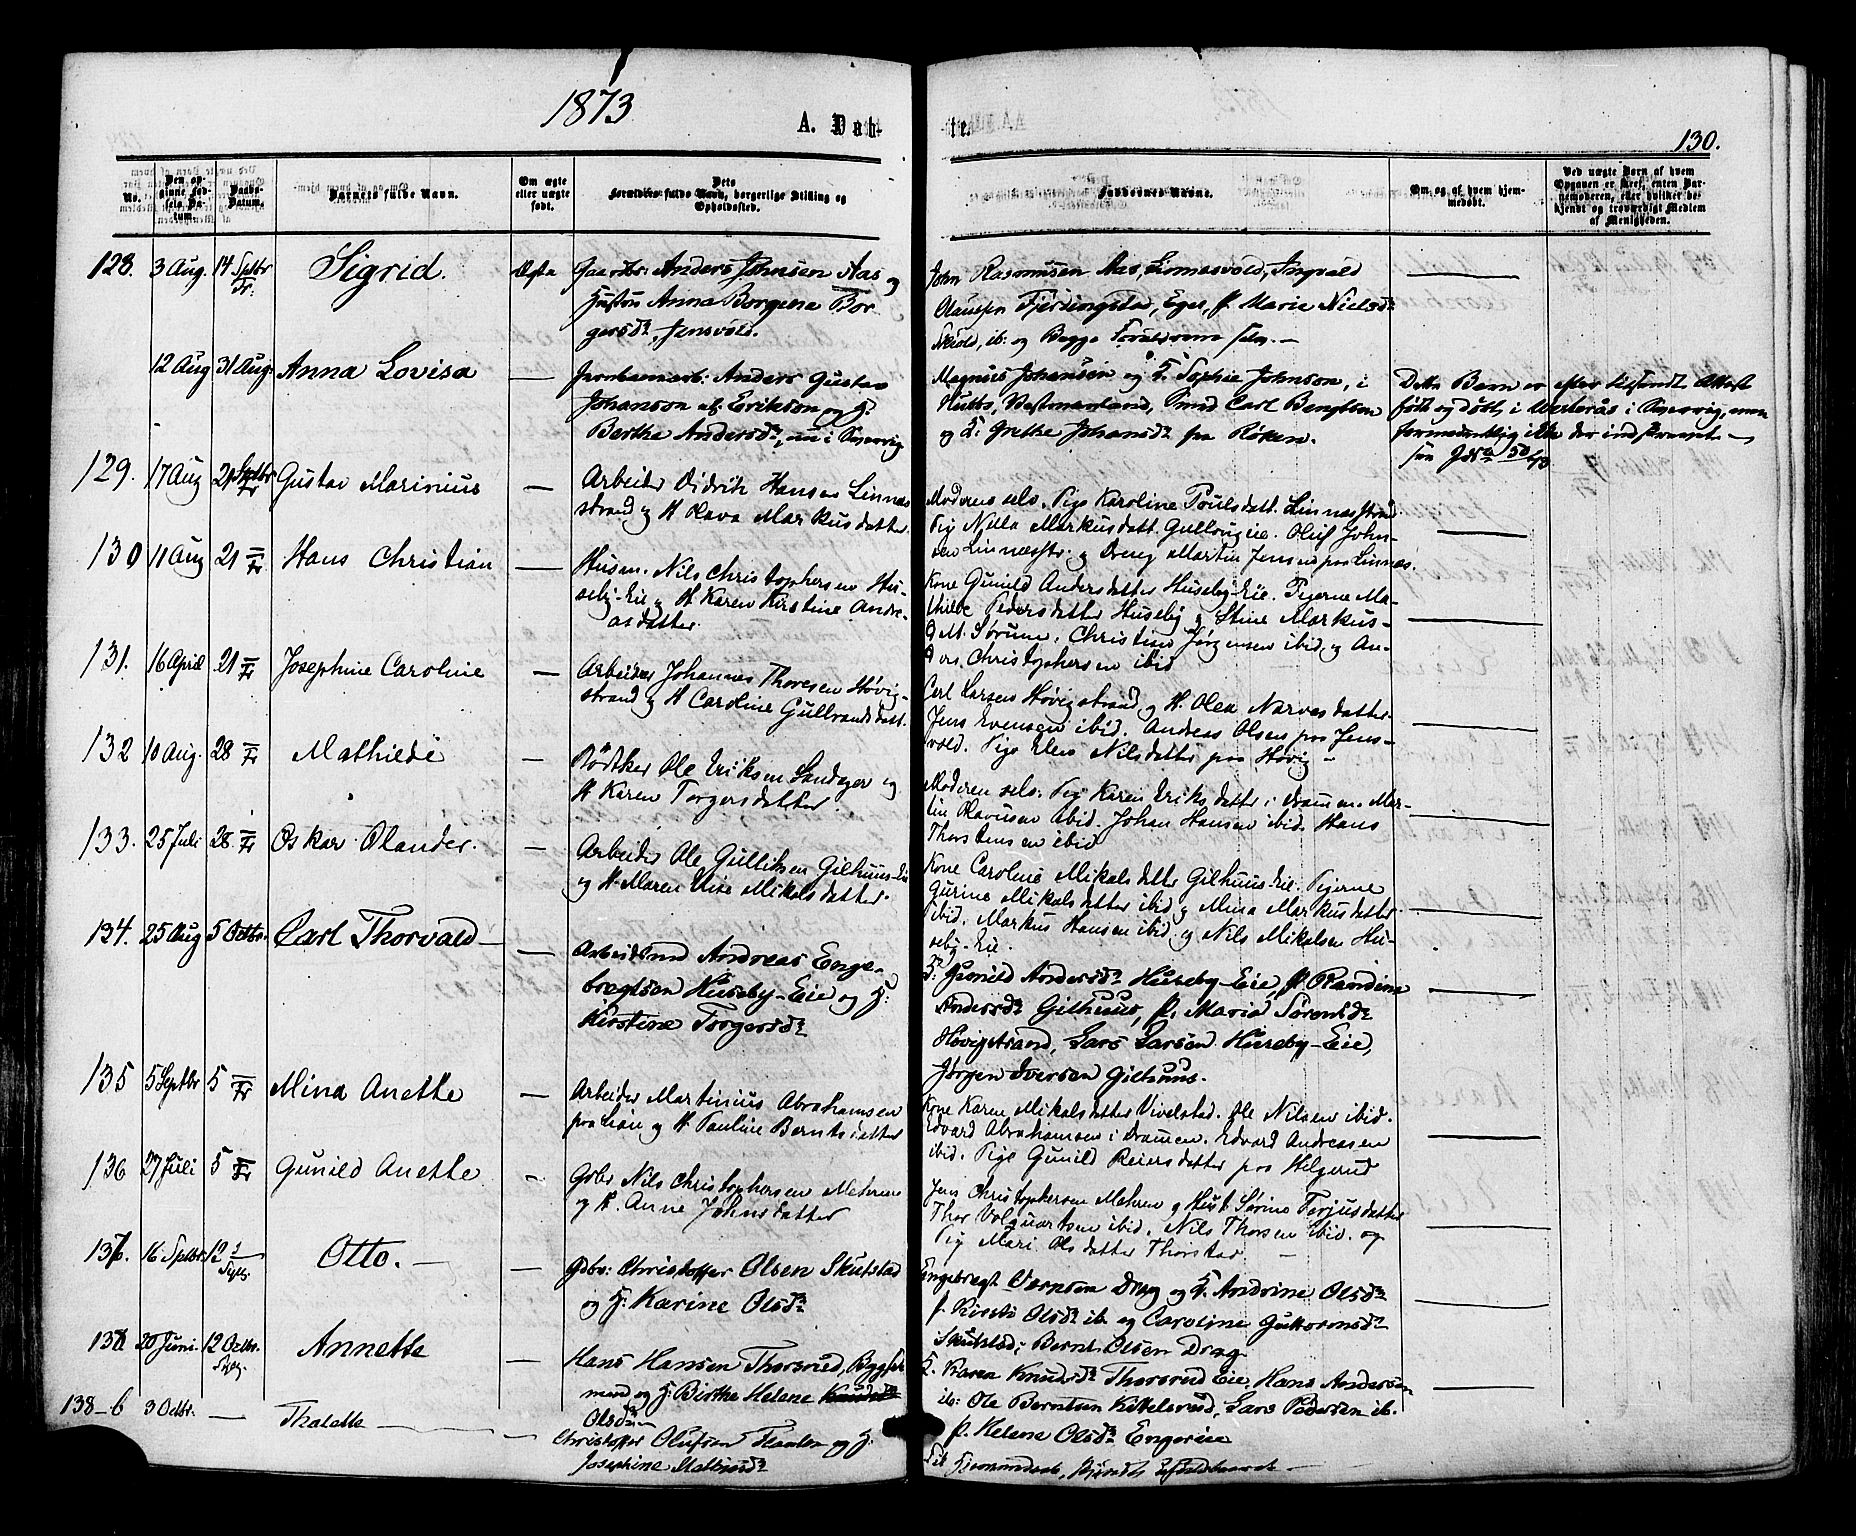 1873
A. Døbte.
130.
No.
Den opgivne Fødsels Datum.
Daabs-Datum.
Barnets fulde Navn.
Om ægte eller uægte født.
Dets Forældres fulde Navn, borgerlige Stilling og Opholdssted.
Faddernes Navne.
Om, og af hvem hjemmedøbt.
Ved uægte Børn af hvem Opgaven er skeet, enten Barnemoderen, eller hvilket bekjendt og troværdigt Medlem af Menigheden.
128. 3 Aug. 14 Septbr Fr: Sigrid. Ægte
Gaardbr: Anders Johnsen Aas og
Hustru Anna Borgine Bor-
gersdr, Jensvold.
John Rasmussen Aas, Ingvald
Olaussen Fjerdingstad, Eger, P. Marie Nielsdr
ib: og Begge Forældrene selv. —
12 Aug 31 Aug: Anna Lovisa —
Anders Gustav
Johanson af Erikson og H.
Berthe Andersdr, nu i
Magnus Johansen og H. Sophie Johnson, i
Vestmanland, Smed Carl Bengtson
og H. Grethe Johansdr fra Røken.
Dette Barn er efter Attest
født og døbt i Westerås i men
formodentlig ikke der indskrevet —
129. 17 Aug 21 Septbr Fr Gustav Marinius —
Arbeider Didrik Hansen Linnæs-
strand og H Olava Markusdatter.
Moderen selv. Pige Karoline Poulsdatt. Linnæsstrand
Pig Nilla Markusdatt. Gullaugeie. Oluf John-
sen Linnæsstr. og Dreng Martin Jensen paa Linnæs.
130 11 Aug 21 — Fr Hans Christian —
Husm. Nils Christophersen Hu-
seby-Eie og H Karen Kirstine Andre-
asdatter.
Kone Gunild Andersdatter Huseby-Eie. Pigerne Ma-
thilde Pedersdatter Huseby og Stine Markus-
d M. Sørum. Christian Jørgensen ibid. og An-
ders Christophersen ibid
131. 16 April 21 — Fr Josephine Caroline —
Arbeider Johannes Thoresen Høvig-
strand og H Caroline Gulbrandsdatt.
Carl Larsen Høvigstrand og H. Olea Narvesdatter.
Jens Evensen ibid. Andreas Olsen paa Jens-
vold. Pige Elen Nilsdatter paa Høvig —
132 10 Aug. 28 — Fr Mathilde —
Bødtker Ole Eriksen Sandager og
H Karen Torgersdatter.
Moderen selv. Pig Karen Eriksdatter i Dramen. Mar-
tin Olausen ibid. Johan Hansen ibid. Hans
Thorstensen ibid
133. 25 Juli 28. — Fr Oskar Olander. —
Arbeider Ole Gulliksen Gilhuus-Eie
og H. Maren Lise Mikalsdatter.
Kone Caroline Mikalsdatter Gilhuus Eie. Pigerne
Gurine Mikalsdatter ibid og Mina Markusdatter
ibid. Markus Hansen ibid. og Nils Mikalsen Hu-
seby-Eie.
134. 25 Aug 5 Octbr. Carl Thorvald —
Arbeidsmd Andreas Enge-
bregtsen Huseby-Eie og H:
Kirstine Torgersdr
H: Gunild Andersdr Huseby-Eie, P. Randine
Andersdr Gilhuus, P. Maria Sørensdr
Høvigstrand, Lars Larsen Huseby-Eie,
Jørgen Iversen Gilhuus.
135 5 Septbr 5 — Fr Mina Anette —
Arbeider Martinius Abrahamsen
paa Lian og H Pauline Berntsdatter
Kone Karen Mikalsdatter Vivelstad. Ole Nilsen ibid.
Edvard Abrahamsen i Dramen. Edvard Andreasen
ibid. Pige Gunild Reiersdatter paa Helgerud
136 27 Juli 5 — Fr Gunild Anette —
Gbr Nils Christophersen Mehren
og H. Anne Johnsdatter
Jens Christophersen Mehren og Hust. Sørine Terjusdatter
Thor Volquartsen ibid. Nils Thorsen ibid. og
Pig Mari Olsdatter Thorstad —
137. 16 Septbr. 12 Sylg. Otto. —
Gdbr: Christoffer Olsen Skutstad
og H: Karine Olsdr
Engebregt Berntsen Drag og H. Andrine Olsdr
P. Kirsti Olsdr ib. og Caroline Guttormsdr
Skutstad, Bernt Olsen Drag.
138 20 Juni. 12 Octbr. Sylg. Annette —
Hans Hansen Thorsrud, Bygsel-
mand og H: Birthe Helene Knudsdr
Olsdr
H. Karen Knudsdr Thorsrud Eie, Hans Andersen
ib: Ole Berntsen Kittelsrud, Lars Pedersen ib.
P. Helene Olsdr Engerud
138-b 3 Octbr. — Thalette — —
Christoffer Olufsen og H.
Josephine